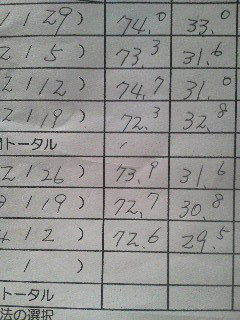 1 / 29 ) 74.0 33.0
2 1 5 ) 73.3 31.6
2 1 12 ) 74.7 31.0
2 1 19 ) 72.3 32.8
トータル
2 1 26 ) 73.9 31.6
1 19 ) 72.7 30.8
4 1 2 ) 72.6 29.5
1 )
トータル
法の選択